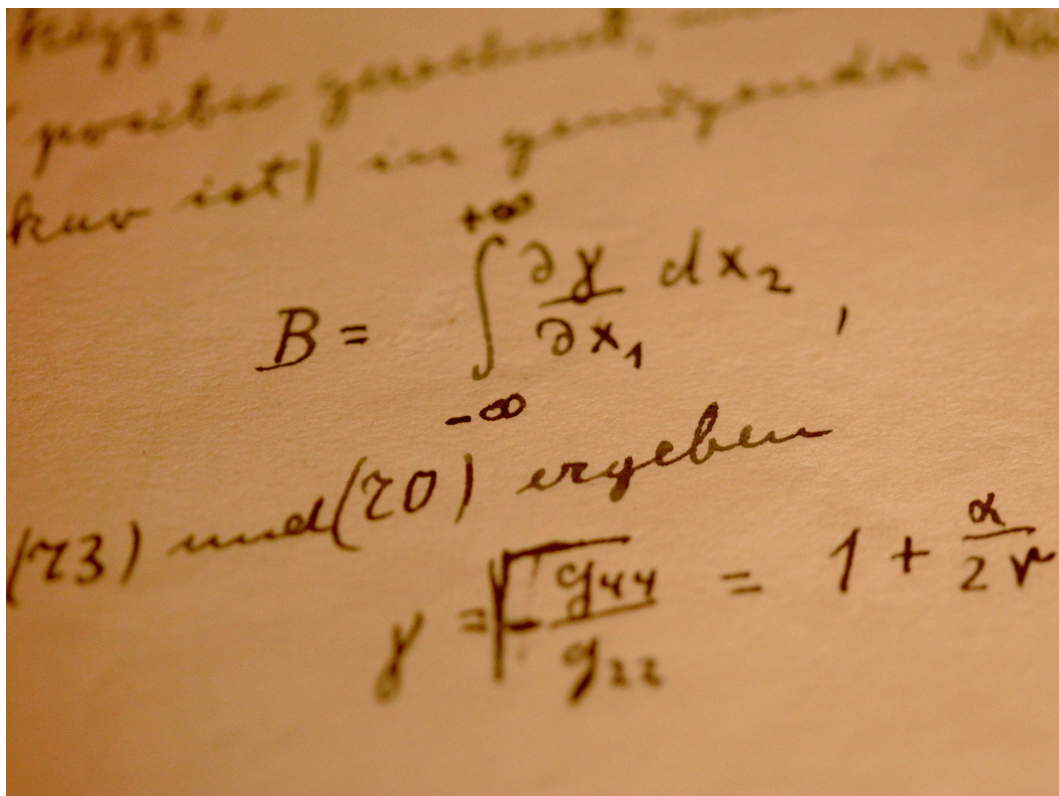 positiv gerechnet,
kav ist) in genügender
B = ∫_{-∞}^{+∞} ∂γ/∂x₁ dx₂ ,
(73) und (70) ergeben
γ = √(-g₄₄/g₂₂) = 1 + α/2r